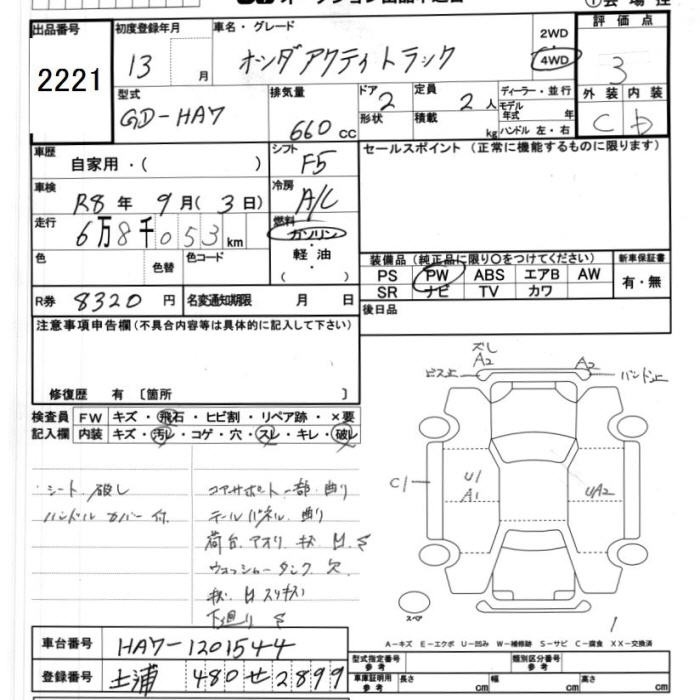 出品番号 2221
初度登録年月 13 月
車名・グレード ホンダアクティトラック
2WD
4WD
評価点 3
外装 内装
C D
型式 GD-HA7
排気量 660 cc
ドア 2
形状
定員 2 人
積載 kg
ディーラー・並行
モデル年式 年
ハンドル 左・右
車歴 自家用・( )
シフト F5
セールスポイント (正常に機能するものに限ります)
車検 R8年 9月(3日)
冷房 A/C
走行 6万8千053km
燃料 ガソリン・軽油・( )
色 色替 色コード
装備品 (純正品に限り○をつけてください)
新車保証書
PS PW ABS エアB AW
有・無
SR ナビ TV カワ
R券 8320円 名変通知期限 月 日
後日品
注意事項申告欄 (不具合内容等は具体的に記入して下さい)
修復歴 有 〔箇所 〕
検査員 FW キズ・飛石・ヒビ割・リペア跡・×要
記入欄 内装 キズ・汚レ・コゲ・穴・スレ・キレ・破レ
シート 破し
ハンドル カバー 付
コアサポート 一部 曲り
テールパネル 曲り
荷台 アオリ キズ 凹 S
ウォッシャータンク 欠
キズ 凹 スリキズ
下廻り S
ズレ
A2
A2
ビス止
バンド止
C1
U1
A1
UA2
スペア
A-キズ E-エクボ U-凹み W-補修跡 S-サビ C-腐食 XX-交換済
車台番号 HA7-1201544
型式指定番号 参考
類別区分番号 参考
登録番号 土浦 480 せ 2899
車庫証明用 参考 長さ cm 幅 cm 高さ cm